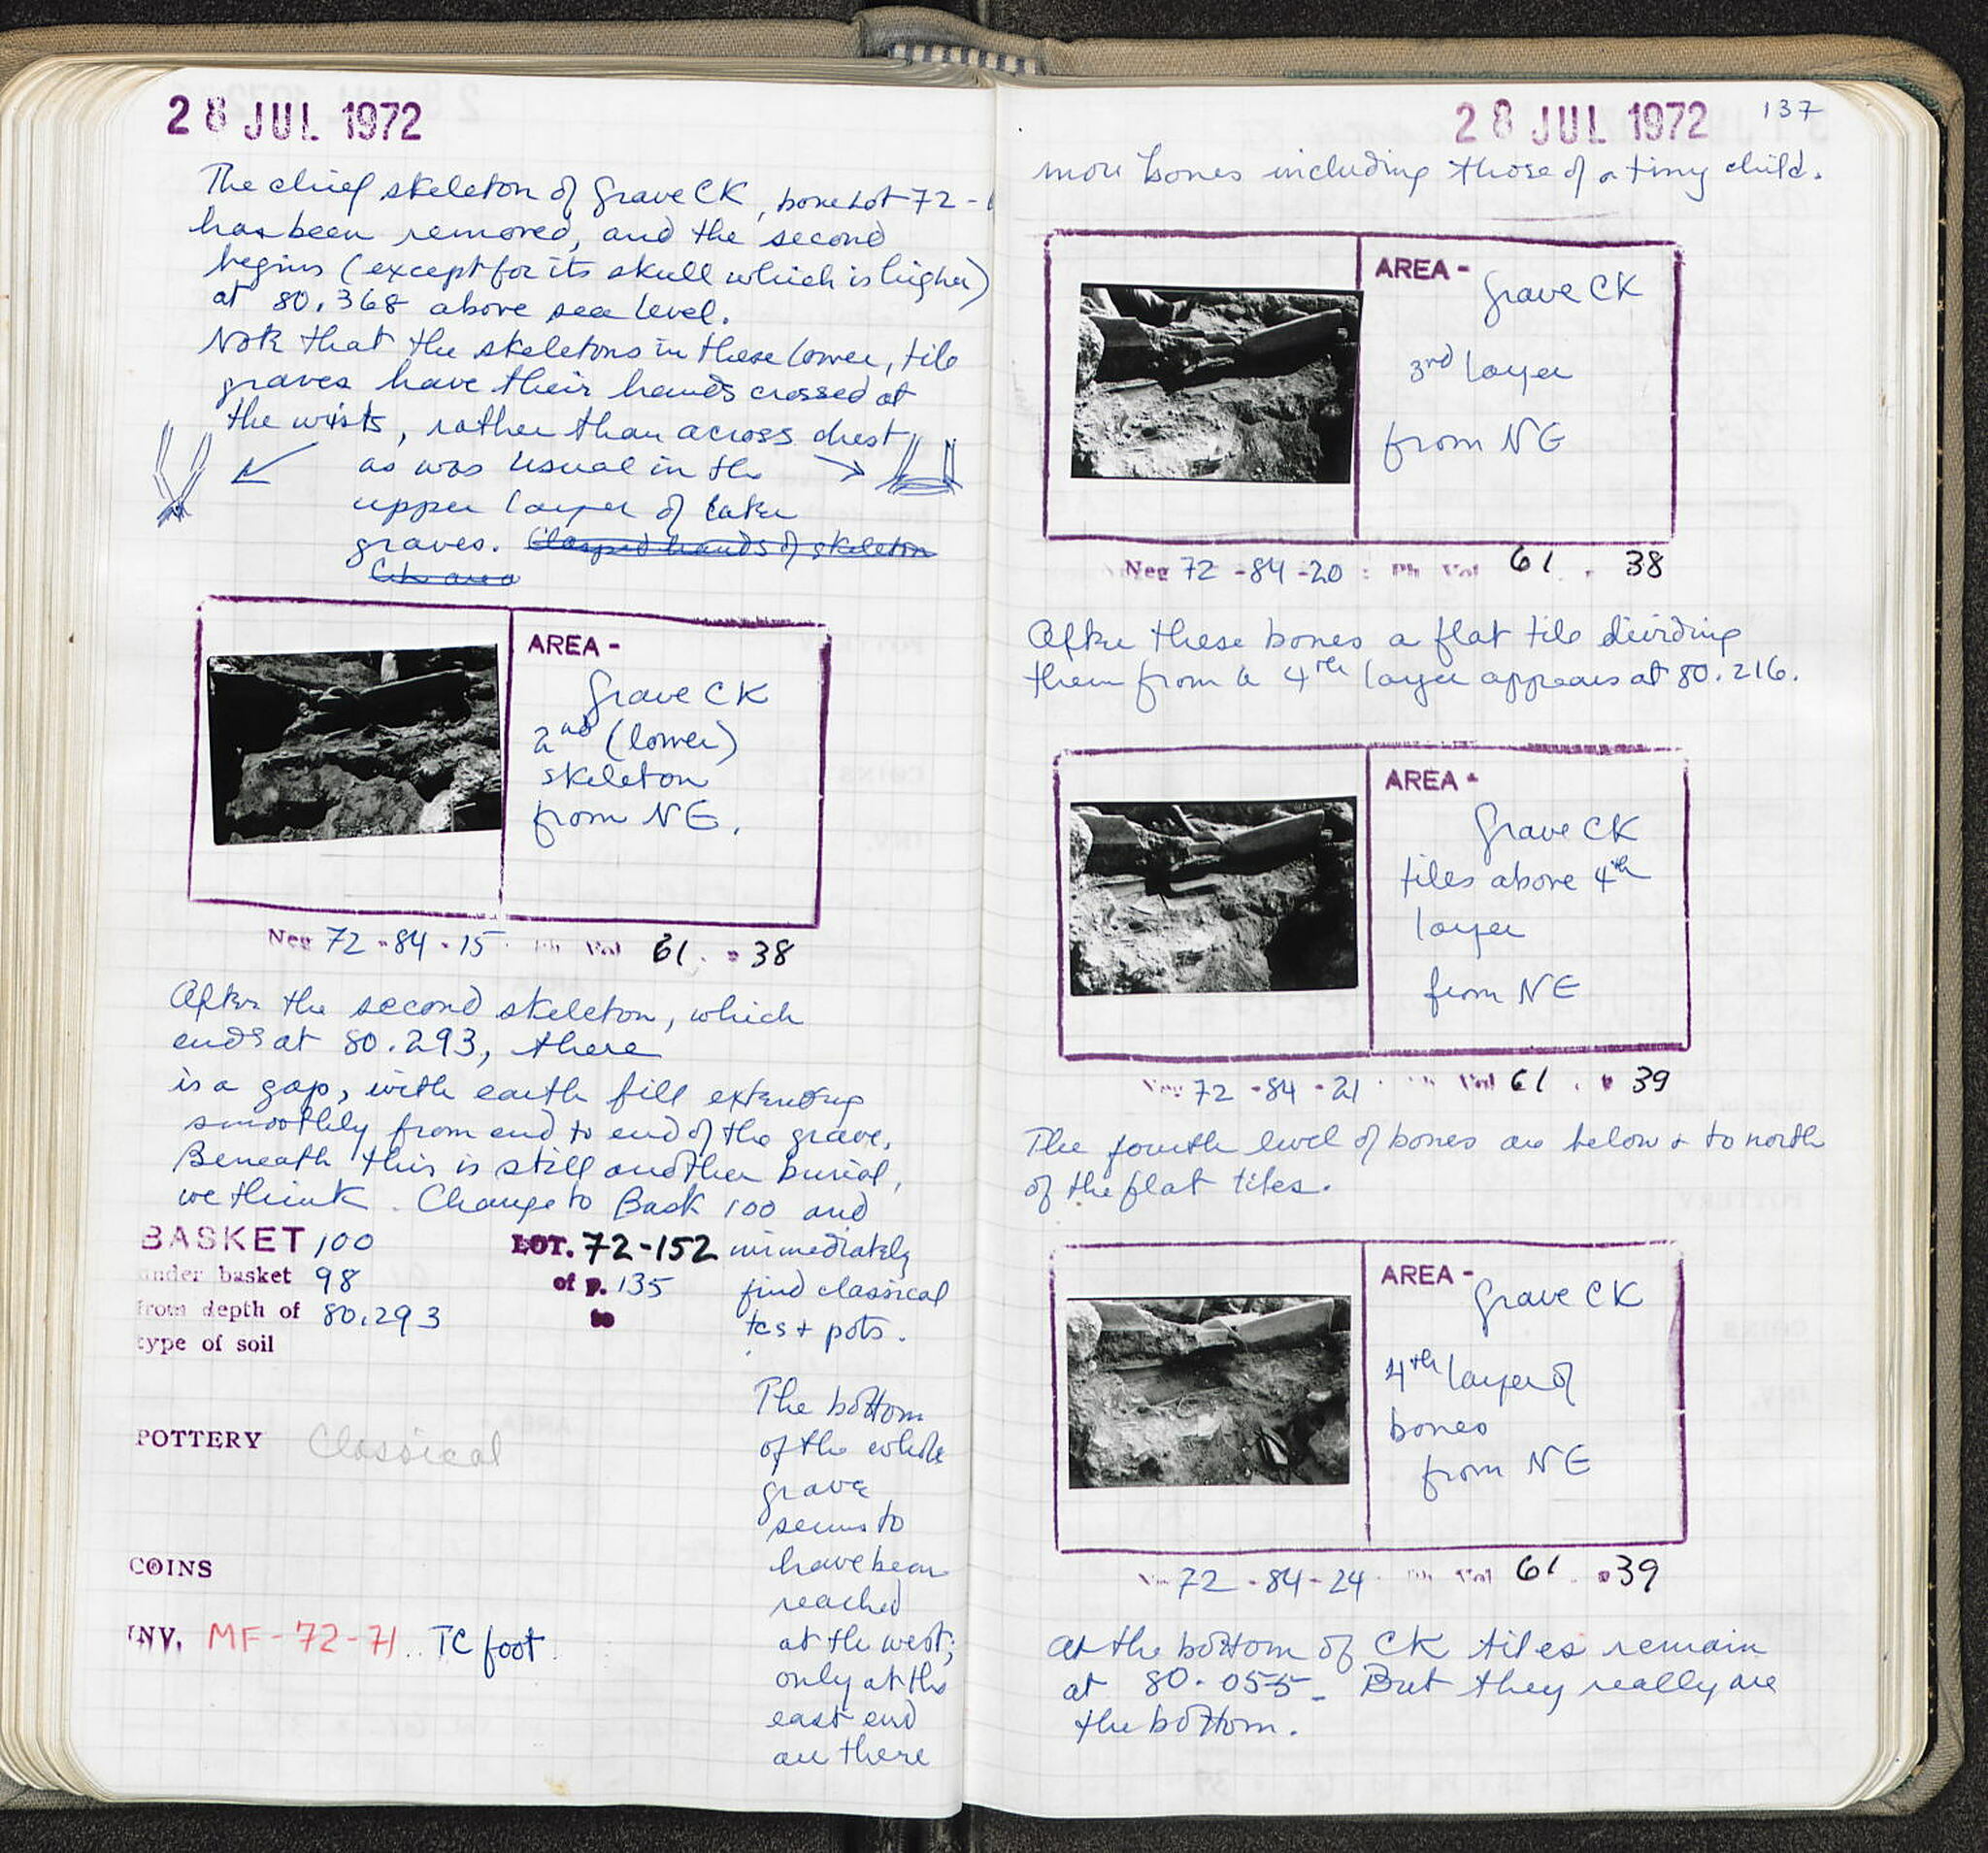 28 JUL 1972
The chief skeleton of Grave CK, bone Lot 72-
has been removed, and the second
begins (except for its skull which is higher)
at 80.368 above sea level.
Note that the skeletons in these lower, tile
graves have their hands crossed at
the wrists, rather than across chest
as was usual in the
upper layer of later
graves. Clasped hands of skeleton
AREA -
Grave CK
2nd (lower)
skeleton
from NE.
Neg 72-84-15 Ph Vol 61 . p 38
After the second skeleton, which
ends at 80.293, there
is a gap, with earth fill extending
smoothly from end to end of the grave,
Beneath this is still another burial,
we think. Change to Bask 100 and
BASKET 100 LOT. 72-152 immediately
under basket 98 of p. 135 find classical
from depth of 80.293 to tcs + pots.
type of soil
The bottom
of the whole
POTTERY Classical
grave
seems to
have been
COINS
reached
INV. MF-72-71.. TC foot.
at the west;
only at the
east end
are there
28 JUL 1972 137
more bones including those of a tiny child.
AREA -
Grave CK
3rd layer
from NE
Neg 72-84-20 : Ph Vol 61 . 38
After these bones a flat tile dividing
them from a 4th layer appears at 80.216.
AREA -
Grave CK
tiles above 4th
layer
from NE
Neg 72-84-21 Ph Vol 61 . p 39
The fourth level of bones are below + to north
of the flat tiles.
AREA -
Grave CK
4th layer of
bones
from NE
Neg 72-84-24 Ph Vol 61 . p 39
At the bottom of CK tiles remain
at 80.055 - But they really are
the bottom.